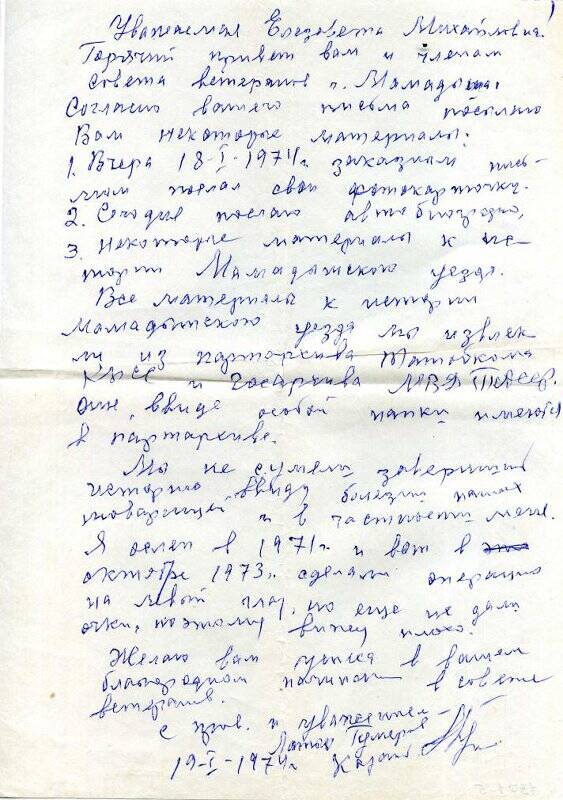 Уважаемая Елезовета Михайловна.
Горячий привет вам и членам
совета ветеранов г. Мамадыша.
Согласно вашего письма посылаю
Вам некоторые материалы:
1. Вчера 18-I-1974г. заказным пись-
мом послал свою фотокарточку.
2. Сегодня посылаю автобиографию,
3. Некоторые материалы к ис-
тории Мамадышского уезда.
Все материалы к истории
Мамадышского уезда мы извлек
ли из партархива Татобкома
КПСС и Госархива МВД ТАССР.
Они, ввиде особой папки имеются
в партархиве.
Мы не сумели завершить
историю ввиду болезни наших
товарищей и в частности меня.
Я ослеп в 1971г. и вот в
октябре 1973г. сделали операцию
на левый глаз, но еще не дали
очки, поэтому вижу плохо.
Желаю вам успеха в вашем
благородном начинании в совете
ветеранов.
с прив. и уважением-
Гумеров
19-I-1974г. Казань